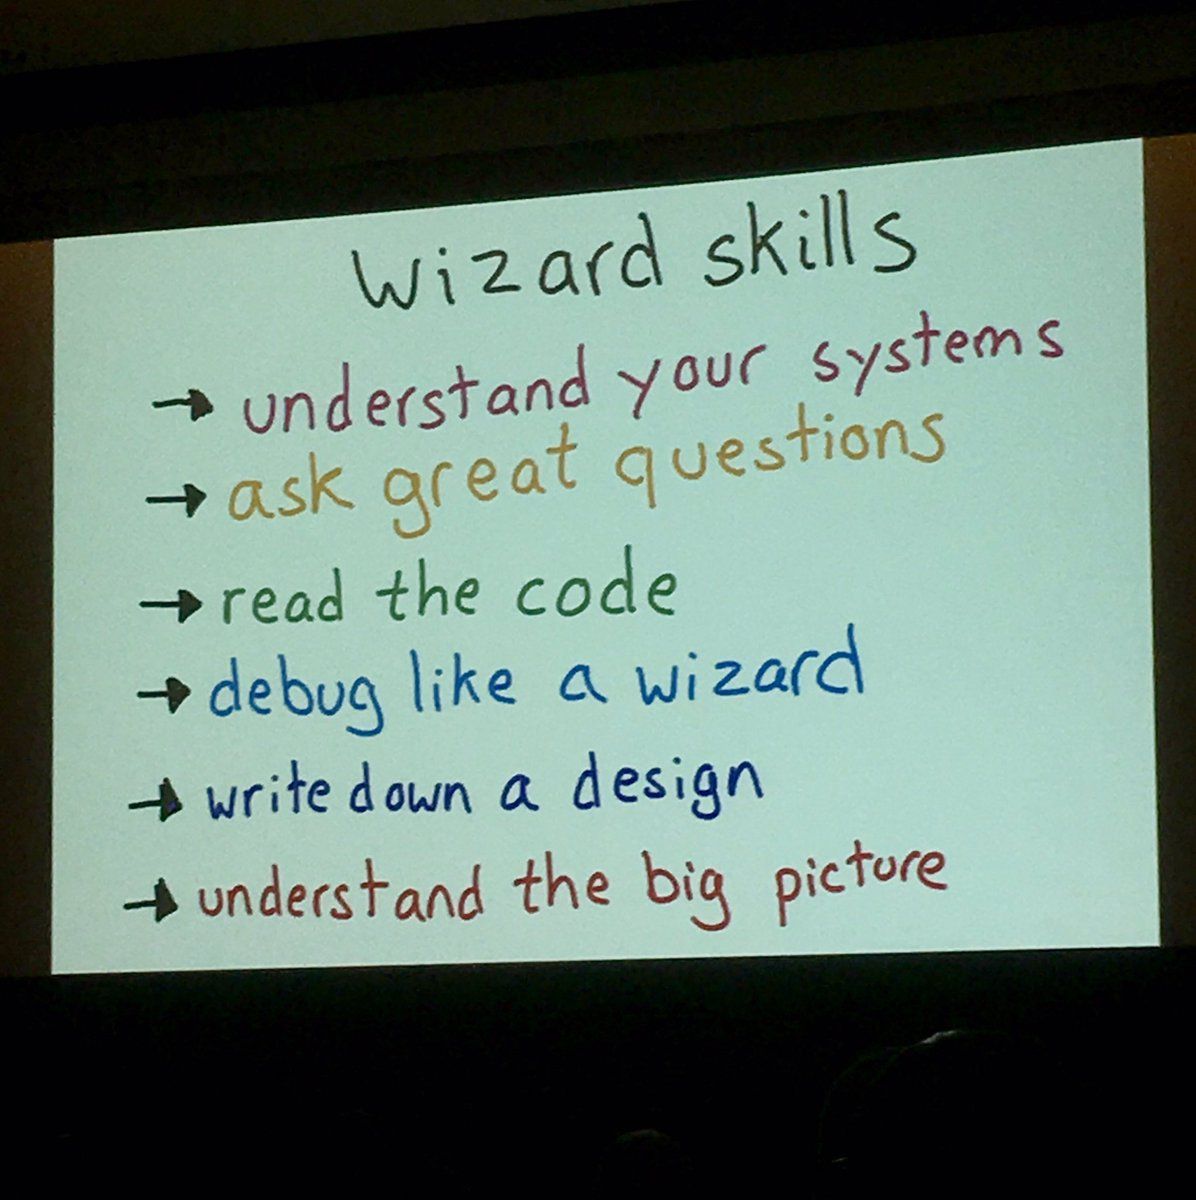 wizard skills
→ understand your systems
→ ask great questions
→ read the code
→ debug like a wizard
→ write down a design
→ understand the big picture